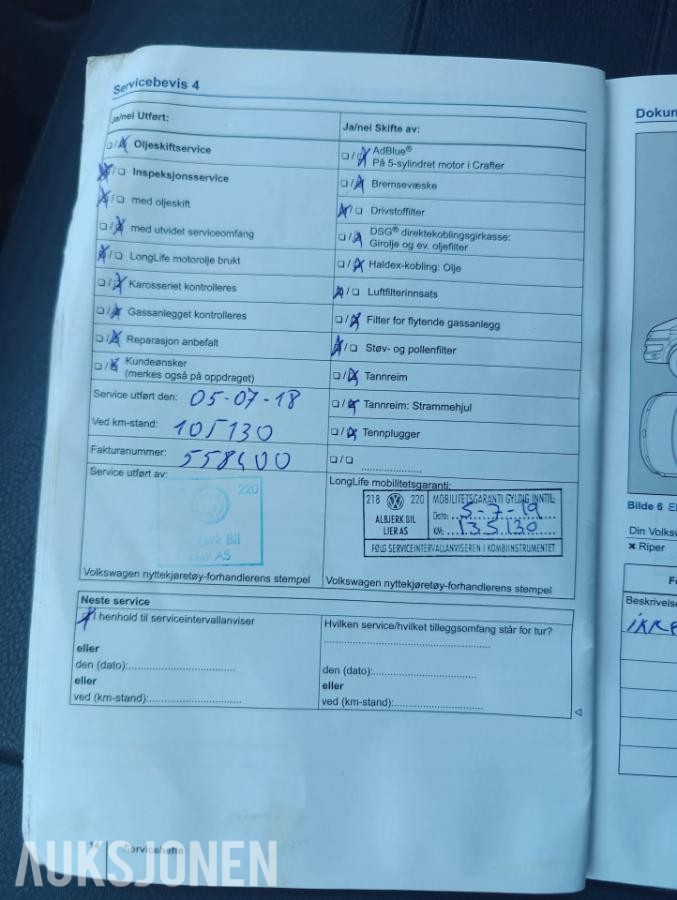 Servicebevis 4
Ja/nei Utført:
☐/☒ Oljeskiftservice
☒/☐ Inspeksjonsservice
☒/☐ med oljeskift
☐/☒ med utvidet serviceomfang
☒/☐ LongLife motorolje brukt
☐/☒ Karosseriet kontrolleres
☐/☒ Gassanlegget kontrolleres
☐/☒ Reparasjon anbefalt
☐/☒ Kundeønsker
(merkes også på oppdraget)
Service utført den: 05-07-18
Ved km-stand: 105130
Fakturanummer: 558400
Service utført av:
220
Bil
Lier AS
Volkswagen nyttekjøretøy-forhandlerens stempel
Ja/nei Skifte av:
☐/☒ AdBlue®
På 5-sylindret motor i Crafter
☐/☒ Bremsevæske
☒/☐ Drivstoffilter
☐/☒ DSG® direktekoblingsgirkasse:
Girolje og ev. oljefilter
☐/☒ Haldex-kobling: Olje
☒/☐ Luftfilterinnsats
☐/☒ Filter for flytende gassanlegg
☒/☐ Støv- og pollenfilter
☐/☒ Tannreim
☐/☒ Tannreim: Strammehjul
☐/☒ Tennplugger
☐/☐ ....................
LongLife mobilitetsgaranti:
218 220
ALBJERK BIL
LIER AS
MOBILITETSGARANTI GYLDIG INNTIL:
Dato: 5-7-19
KM: 135130
FØLG SERVICEINTERVALLANVISEREN I KOMBIINSTRUMENTET
Volkswagen nyttekjøretøy-forhandlerens stempel
Neste service
☒ I henhold til serviceintervallanviser
eller
den (dato):..............................
eller
ved (km-stand):..........................
Hvilken service/hvilket tilleggsomfang står for tur?
..................................................
den (dato):..............................
eller
ved (km-stand):..........................
14 Servicehefte
Dokun
Bilde 6 El
Din Volksw
× Riper
F
Beskrivelse
AUKSJONEN